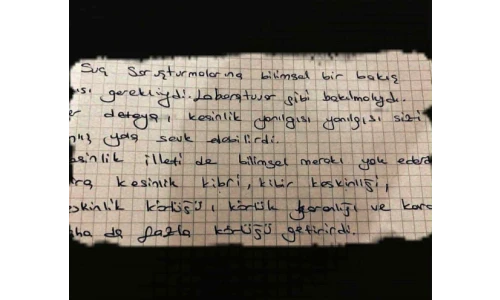 Suç Soruşturmalarına bilimsel bir bakış
ısı gerekliydi. Laboratuvar gibi bakılmalıydı.
er detaya, kesinlik yanılgısı yanılgısı sizi
nlış yola sevk edebilirdi.
esinlik illeti de bilimsel merakı yok ederdi
kesinlik kibri, kibir keskinliği,
eskinlik körlüğü, körlük karanlığı ve kara
ha da fazla körlüğü getirirdi.